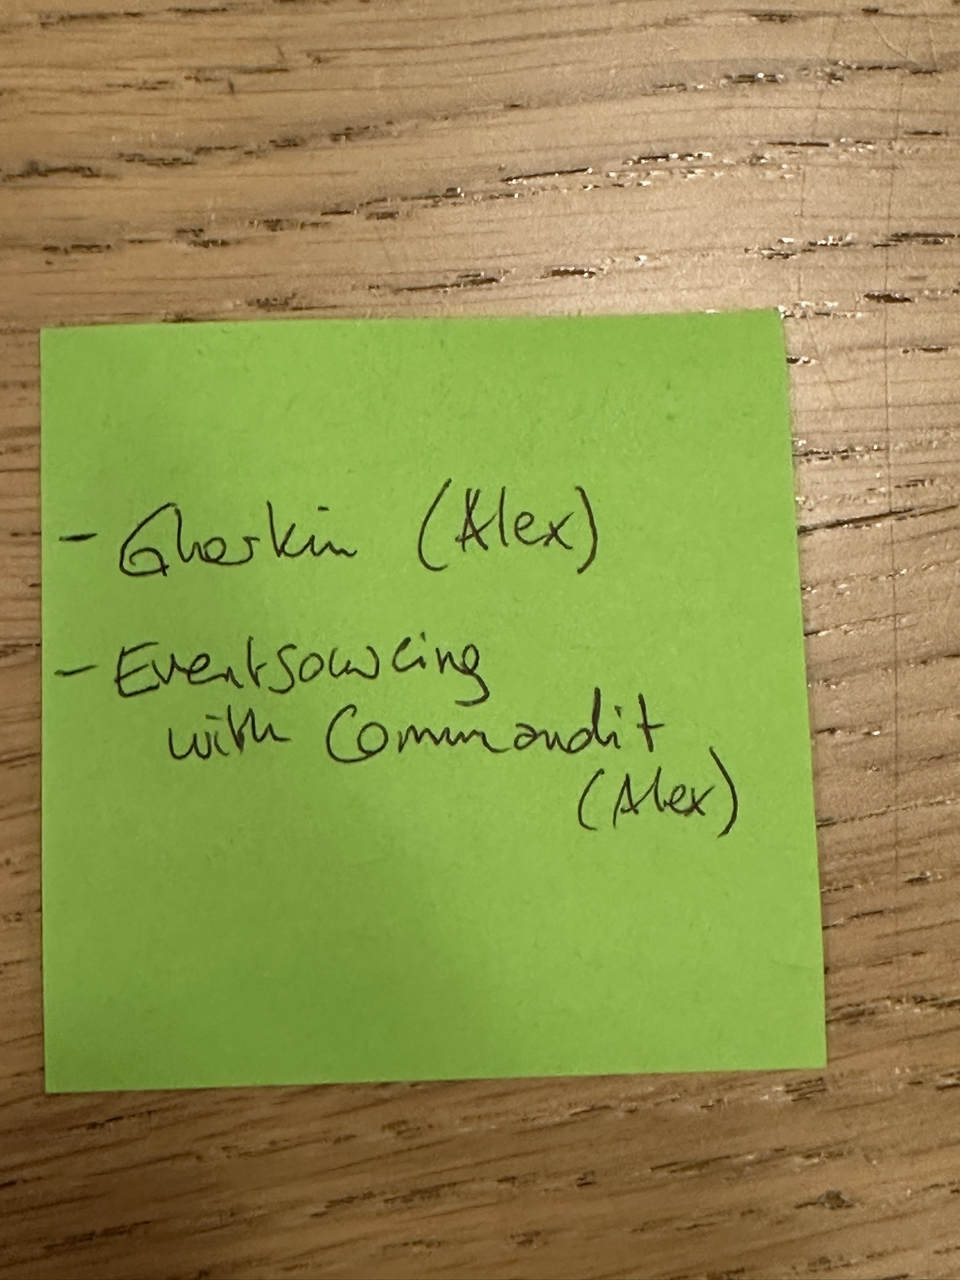 - Gherkin (Alex)
- Eventsourcing
with Commandit
(Alex)